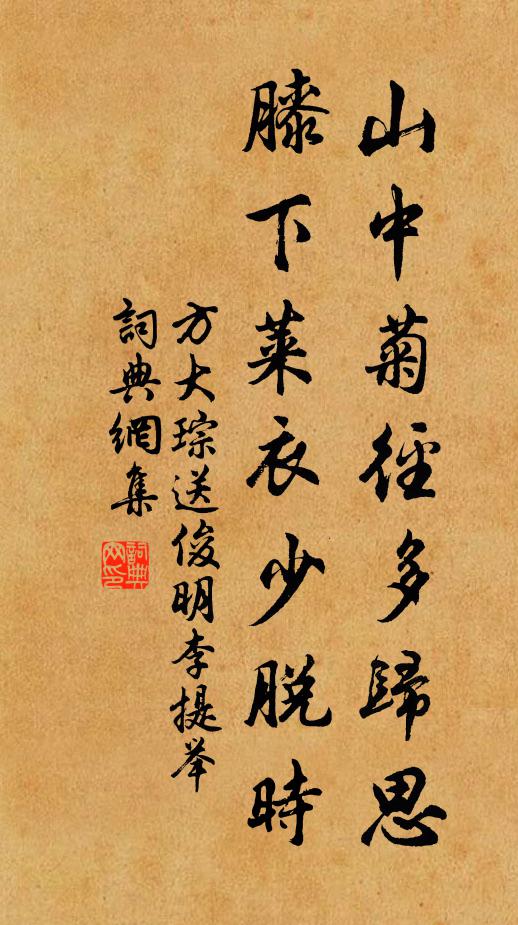 山中菊徑多歸思
膝下萊衣少脱時
方大琮送俊明李提举
詞典網集
詞典
网印